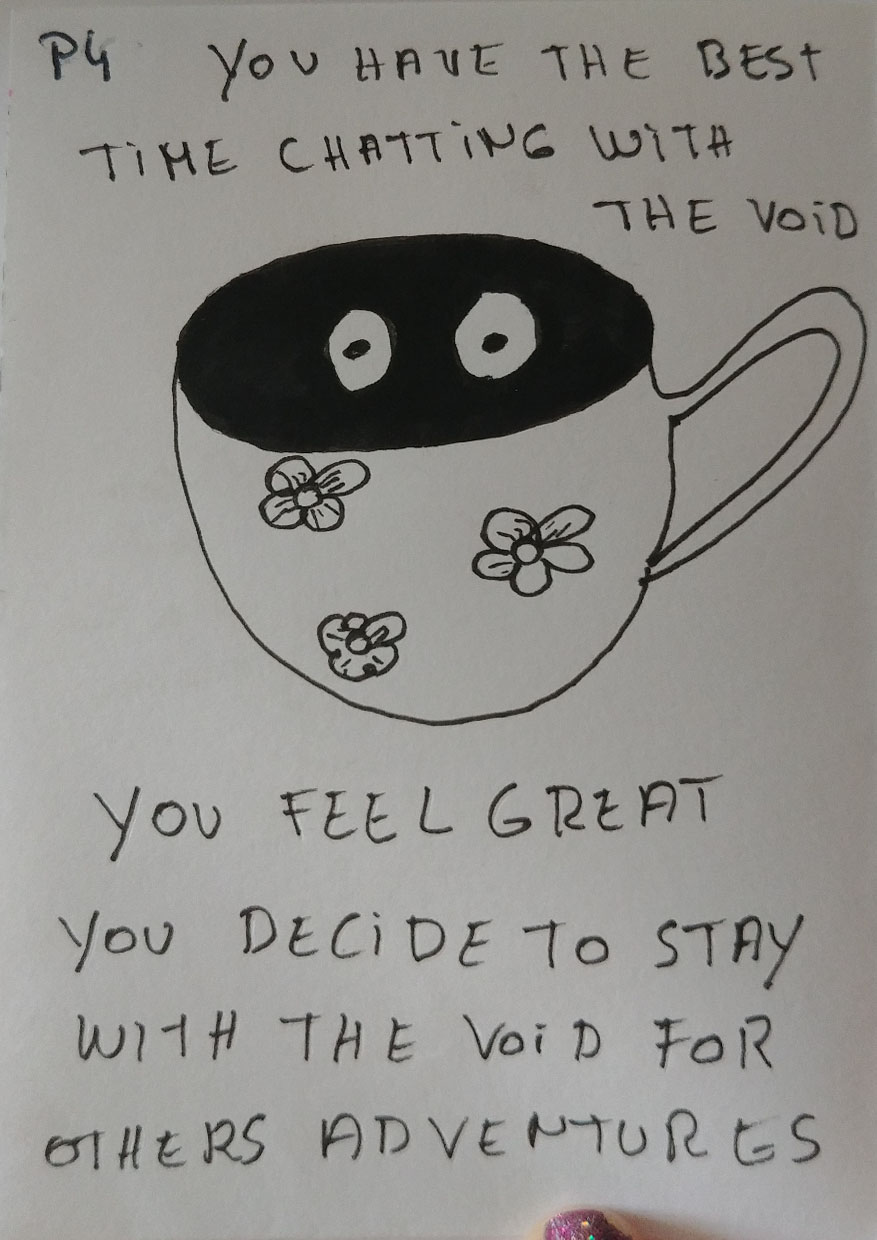 P4 YOU HAVE THE BEST
TIME CHATTING WITH
THE VOID
YOU FEEL GREAT
YOU DECIDE TO STAY
WITH THE VOID FOR
OTHERS ADVENTURES